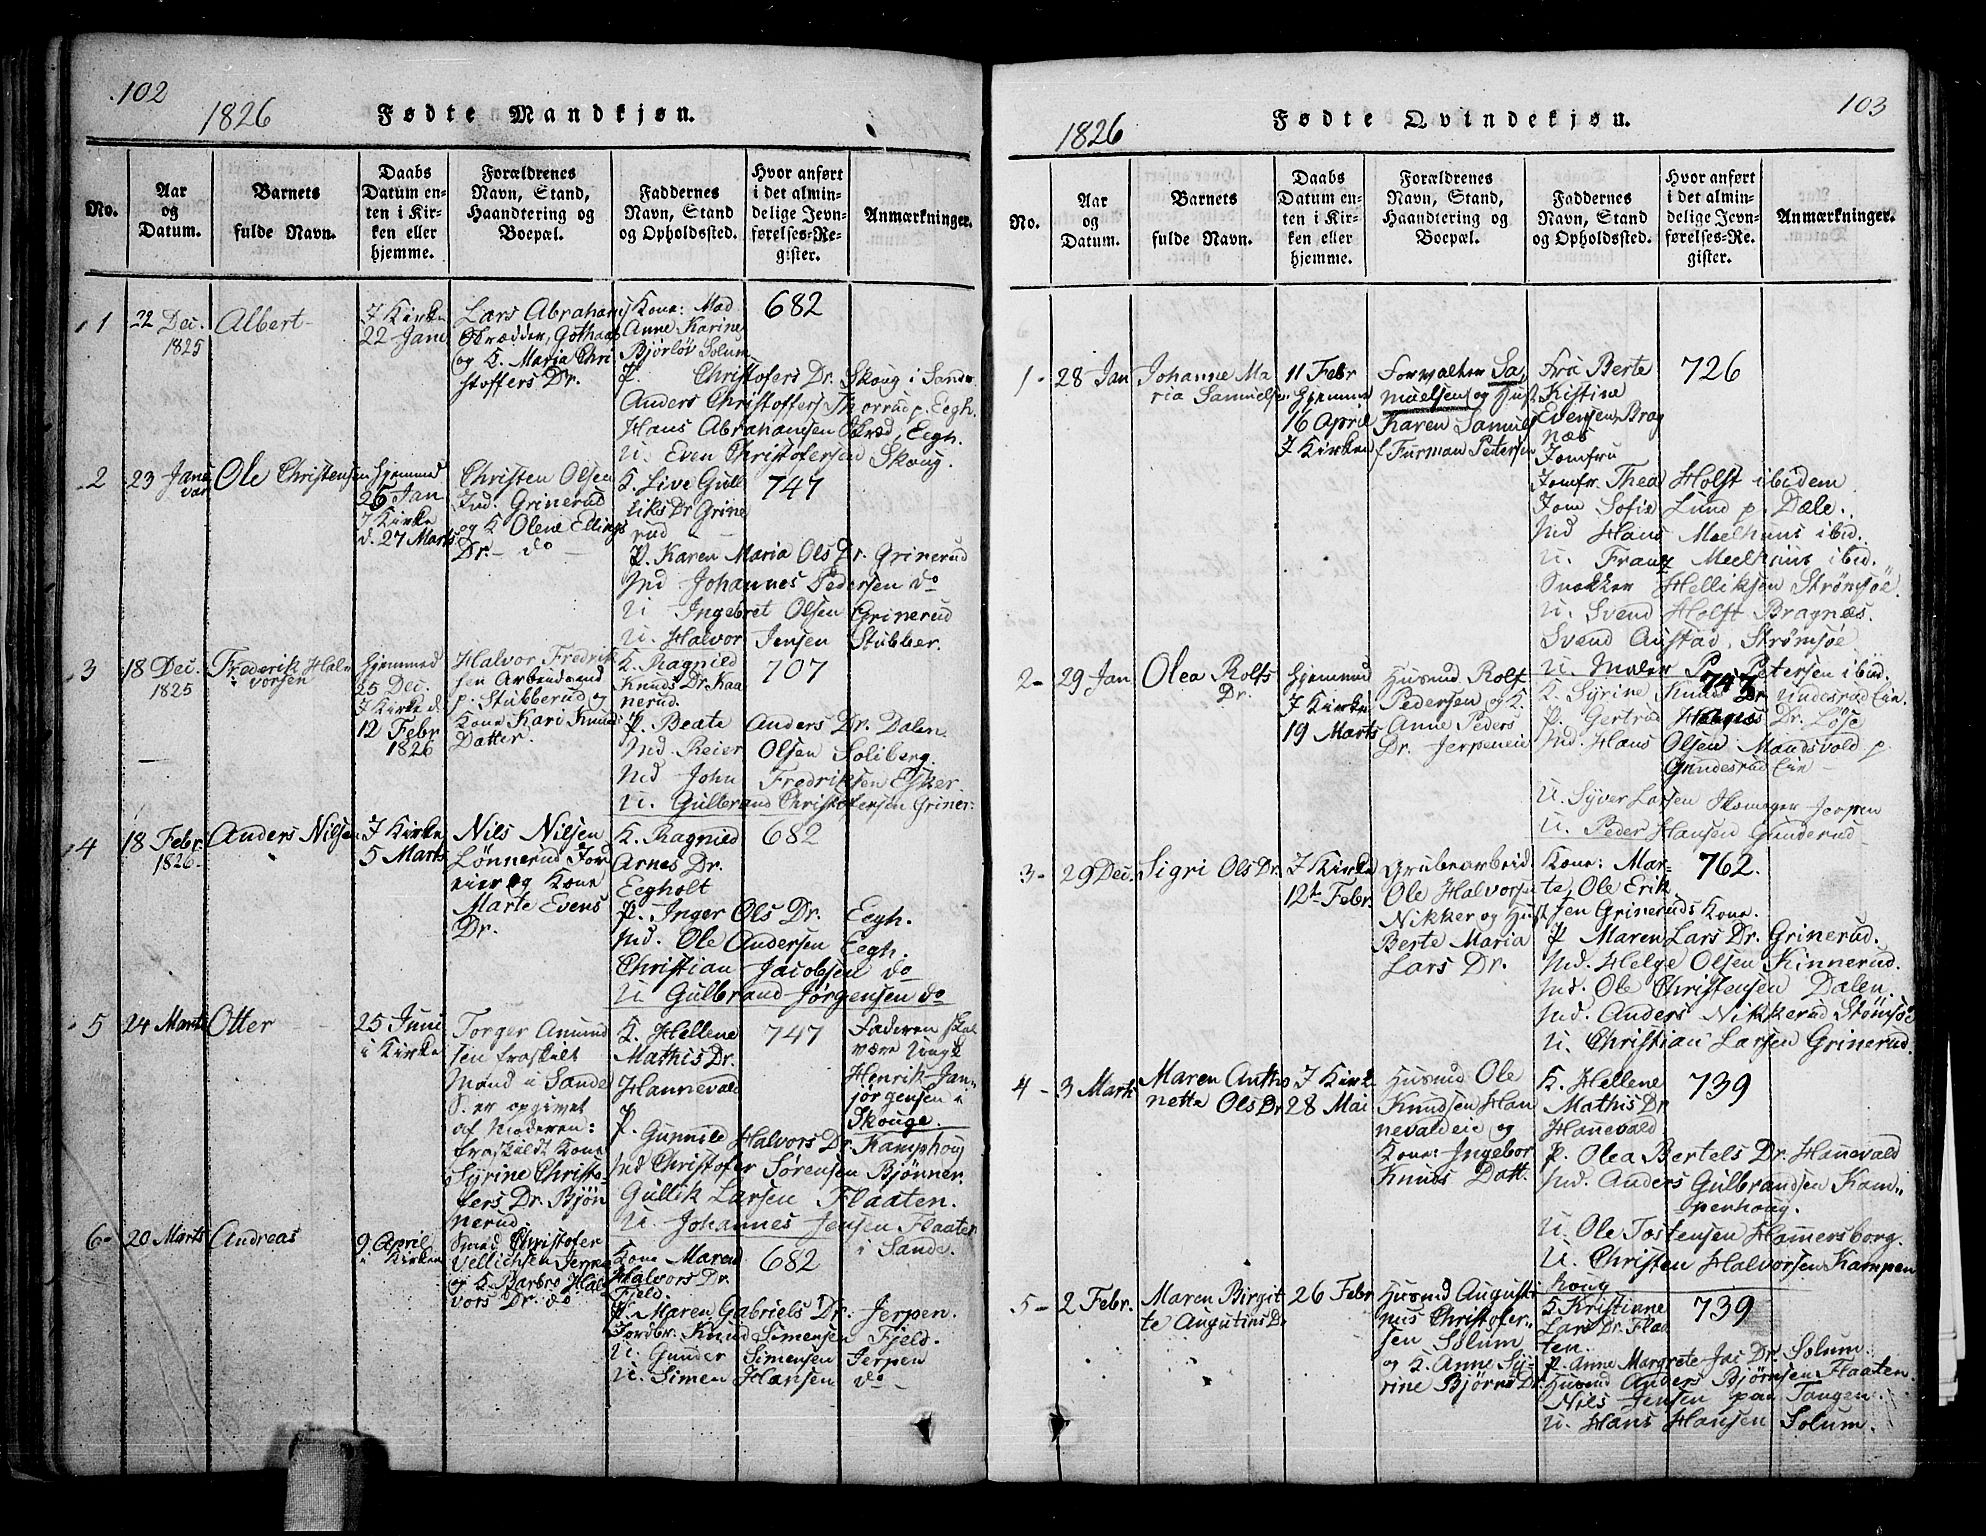 102
1826
Fødte Mandkjøn.
No.
Aar
og
Datum.
Barnets
fulde Navn.
Daabs
Datum en-
ten i Kir-
ken eller
hjemme.
Forældrenes
Navn, Stand,
Haandtering og
Boepæl.
Faddernes
Navn, Stand
og Opholdssted.
Hvor anført
i det almin-
delige Jevn-
førelses-Re-
gister.
Anmærkninger.
1
22 Dec.
1825
Albert
I Kirke
22 Jan
Lars Abrahams
Skrædder, Gothaas
og K. Maria Chri
stoffers Dr.
Kone: Mad
Anne Karine
Bjørløv Solum
P. Christofers Dr. Skoug i Sande
Anders Christoffers Thorrud p. Eegh.
Hans Abrahamsen Skræd, Eegh.
U. Even Christofersen Skoug.
682
2
23 Janu
var
Ole Christensen
hjemmed
26 Jan
I Kirke
d. 27 Marts
Christen Olsen
Ind. Grinerud
og K Olene Ellings
Dr. do
K. Live Gul
liks Dr Grine
rud
P. Karen Maria Ols Dr. Grinerud
Md Johannes Pedersen do
U Ingebret Olsen Grinerud
U. Halvor Jensen Stubber.
747
3
18 Dec.
1825
Frederik Hal-
vorsen
hjemmed
25 Dec.
I Kirke d.
12 Febr
1826
Halvor Fredrik
sen Arbeidsmand
p. Stubberud og
Kone Kari Knuds
Datter.
K. Ragnild
Knuds Dr. Kaa
nerud.
P. Beate Anders Dr. Dalen
Md Reier Olsen Solberg.
Md John Fredriksen Esker.
U. Gulbrand Christofersen Griner:
707
4
18 Febr.
1826.
Anders Nilsen
I Kirke
5 Marts
Nils Nilsen
Lønnerud For
eier og Kone
Marte Evens
Dr.
K. Ragnild
Arnes Dr.
Eegholt
P. Inger Ols Dr. Eegh.
Md. Ole Andersen Eegh.
Christian Jacobsen do
U Gulbrand Jørgensen do
682
5
24 Marts
Otter
25 Juni
i Kirke
Torger Amund
sen fraskilt
Mand i Sande
S. er opgivet
af Moderen:
fraskildt Kone
Syrine Christo-
fers Dr. Bjøn
nerud
K. Hellene
Mathis Dr.
Hannevald
P. Gunnile Halvors Dr. Kamphoug
Md Christofer Sørensen Bjønner.
Gullik Larsen Flaaten.
U. Johannes Jensen Flaaten
i Sande.
747
Faderen skal
være Ungk
Henrik Jan-
jørgensen i
Skouge.
6
20 Marts
Andreas
9. April
i Kirken
Smed Christofer
Vellichsen Jerpen
og K. Barbro Hal
vors Dr. do
Kone Maren
Halvors Dr.
Fjeld.
P. Maren Gabriels Dr. Jerpen.
Jordbr. Knud Simensen Fjeld.
U. Gunder Simensen Jerpen
U. Simen Hansen do
682
103
1826
Fødte Qvindekjøn.
No.
Aar
og
Datum.
Barnets
fulde Navn.
Daabs
Datum en-
ten i Kir-
ken eller
hjemme.
Forældrenes
Navn, Stand,
Haandtering og
Boepæl.
Faddernes
Navn, Stand
og Opholdssted.
Hvor anført
i det almin-
delige Jevn-
førelses-Re.
gister.
Anmærkninger.
1
28 Jan
Johanne Ma
ria Samuelsen
11 Febr
hjemme
16 April
I Kirken
Forvalter Sa
muelsen og Hust
Karen Samuels
f Furman Petersen
Fru Berte
Kistine
Evensen Brag
næs
Jomfru
Jomfr. Thea Holst ibidem
Jom Sofie Lund p. Dæle.
Md Hans Meelhuus ibid.
U. Frantz Meelhuus ibid.
Snekker Helliksen Strømsøe.
U. Svend Holst Bragnæs.
Svend Austad, Strømsøe
U. Maler Petersen ibid.
726
2
29 Jan
Olea Rolfs
Dr.
hjemmed
I Kirke
19 Marts
Husmd Rolf
Pedersen og K
Anne Peders
Dr. Jerpeneie
K. Syrine Knuds Dr Undesrud Eie.
P. Gertrud Hanses Dr. Løse
Md. Hans Olsen Mandsvold p.
Gundesrud Eie
U. Syver Larsen Skomager Jerpen
U. Peder Hansen Gunderud
747
3
29 Dec.
Sigri Ols Dr.
I Kirke
12t Febr.
Grubearbeid
Ole Halvorse
Nikker og Hust
Berte Maria
Lars Dr.
Kone: Mar-
te, Ole Erik
sen Grineruds Kone.
P Maren Lars Dr. Grinerud.
Md. Helge Olsen Kinnerud.
Md. Ole Christensen Dalen.
Md. Anders Nikkerud Strømsøe
U. Christian Larsen Grinerud.
762.
4
3 Marts
Maren Anthon
nette Ols Dr
I Kirk
28 Mai
Husmd Ole
Knudsen Han
nevaldeie og
Kone: Ingebor
Knuds Datt.
K. Hellene
Mathis Dr
Hanevald
P. Olea Bertels Dr. Hanevald
Md. Anders Gulbrandsen Kam-
penhoug.
U. Ole Tostensen Hamersborg.
U. Christen Halvorsen Kampen
houg
739
5
2 Febr.
Maren Birgit
te Augutins Dr
26 Febr
Husmd August
nus Christofer-
sen Solum
og K. Anne Sy-
rine Bjørns Dr
K Kristinne
Lars Dr. Flaa
ten.
P. Anne Margrete Jac Dr. Solum.
Husmd Anders Bjørnsen Flaaten.
Nils Jensen paa Tangen.
U. Hans Hansen Solum.
739